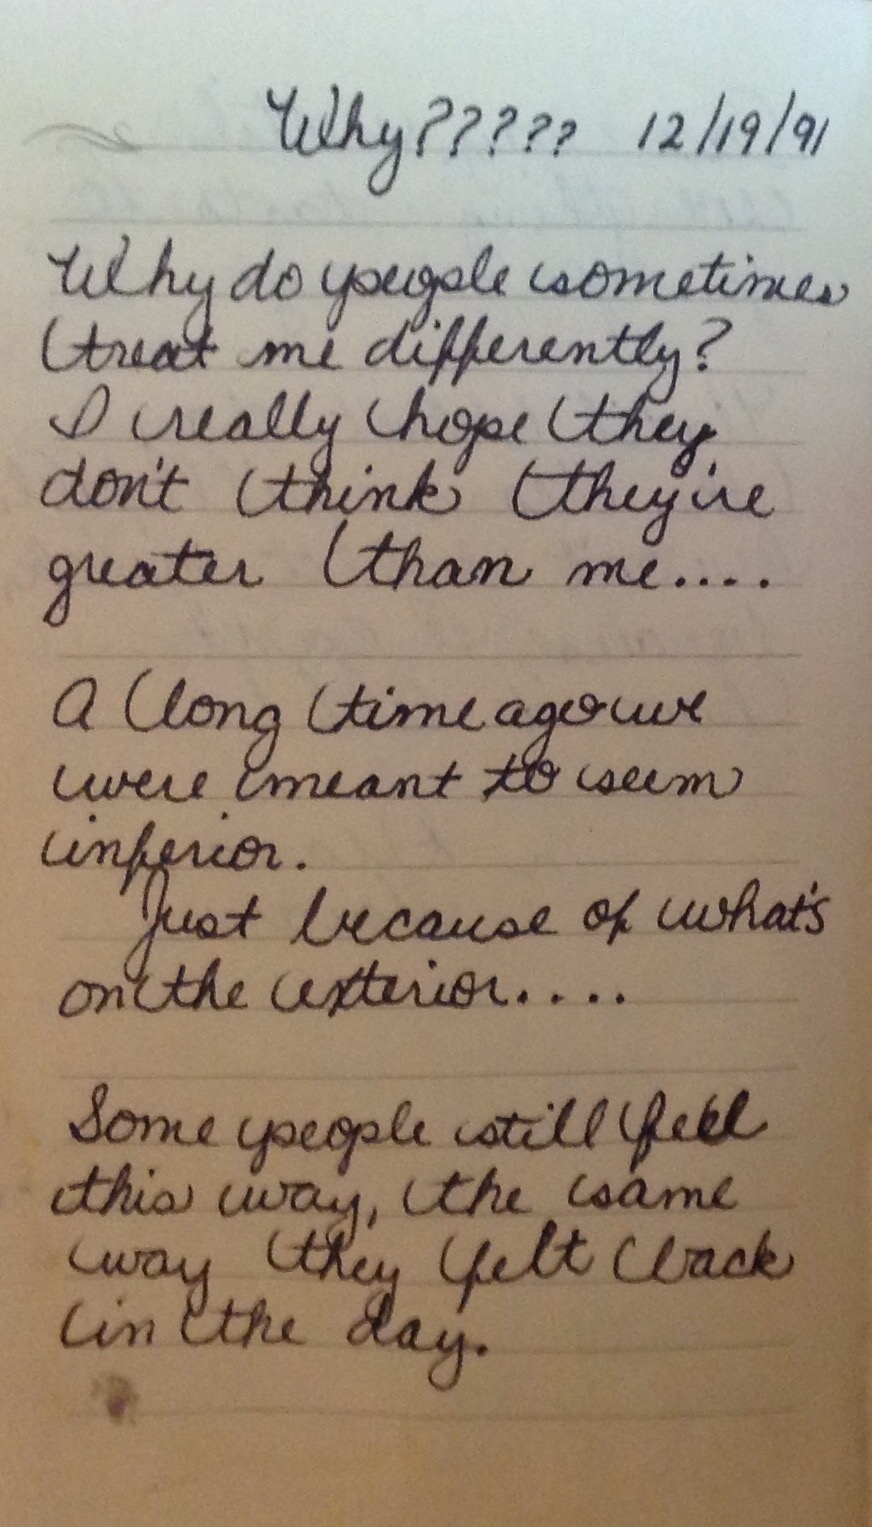 Why????? 12/19/91
Why do people sometimes
treat me differently?
I really hope they
don't think they're
greater than me....
A long time ago we
were meant to seem
inferior.
Just because of what's
on the exterior....
Some people still feel
this way, the same
way they felt back
in the day.